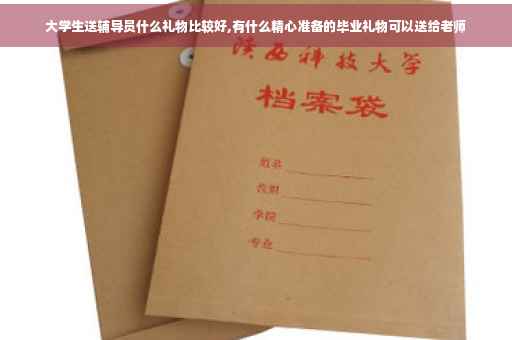 大学生送辅导员什么礼物比较好,有什么精心准备的毕业礼物可以送给老师
陕西科技大学
档案袋
姓名
教职
学院
专业